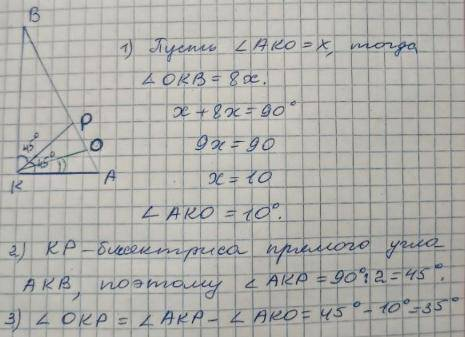 B
1) Пусть ∠AKO = x, тогда
∠OKB = 8x.
x + 8x = 90°
9x = 90
x = 10
∠AKO = 10°.
P
O
45°
45°
1)
K
A
2) KP – биссектриса прямого угла
AKB, поэтому ∠AKP = 90°:2 = 45°.
3) ∠OKP = ∠AKP – ∠AKO = 45° – 10° = 35°